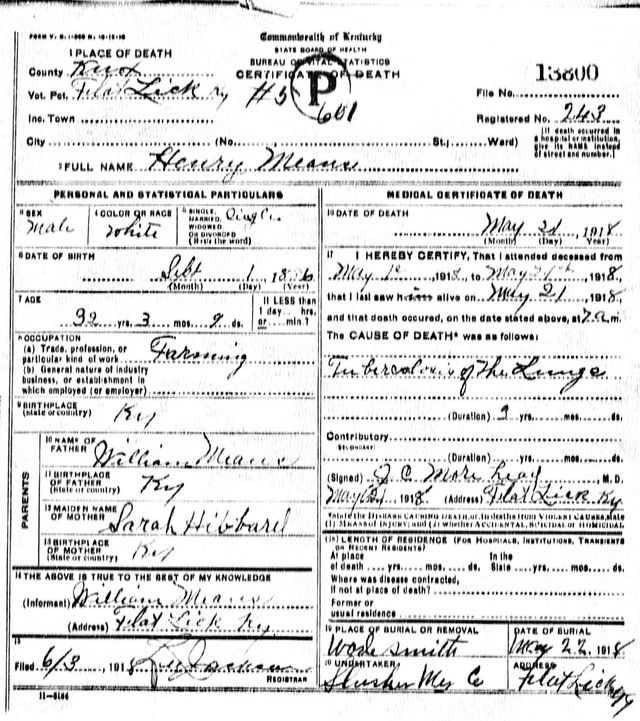 FORM V. S. 1-
Commonwealth of Kentucky
STATE BOARD OF HEALTH
BUREAU OF VITAL STATISTICS
CERTIFICATE OF DEATH
1 PLACE OF DEATH
County Knox
Vot. Pct. Flat Lick Ky #5
P
601
13800
File No.
Inc. Town
Registered No. 243
City (No. St.; Ward)
(If death occurred in a hospital or institution, give its NAME instead of street and number.)
2 FULL NAME Henry Means
PERSONAL AND STATISTICAL PARTICULARS
3 SEX
Male
4 COLOR OR RACE
White
5 SINGLE, MARRIED, WIDOWED, OR DIVORCED (Write the word)
6 DATE OF BIRTH
Sept 1 1886
(Month) (Day) (Year)
7 AGE
32 yrs. 3 mos. 9 ds.
If LESS than 1 day.. hrs. or... min.?
8 OCCUPATION
(a) Trade, profession, or particular kind of work Farming
(b) General nature of industry
business, or establishment in
which employed (or employer)
9 BIRTHPLACE
(State or country) Ky
PARENTS
10 NAME OF FATHER William Means
11 BIRTHPLACE OF FATHER
(State or country) Ky
12 MAIDEN NAME OF MOTHER Sarah Hibbard
13 BIRTHPLACE OF MOTHER
(State or country) Ky
14 THE ABOVE IS TRUE TO THE BEST OF MY KNOWLEDGE
(Informant) William Means
(Address) Flat Lick Ky
15
Filed 6/3, 1918
REGISTRAR
11-6184
MEDICAL CERTIFICATE OF DEATH
16 DATE OF DEATH
May 1918
(Month) (Day) (Year)
17 I HEREBY CERTIFY, That I attended deceased from
May 1st, 1918, to May 21st, 1918,
that I last saw him alive on May 21, 1918,
and that death occured, on the date stated above, at 7 a.m.
The CAUSE OF DEATH* was as follows:
Tuberculosis of The Lungs
(Duration) 2 yrs. mos. ds.
Contributory
SECONDARY
(Duration) yrs. mos. ds.
(Signed) J C M. D.
May 1918 (Address) Flat Lick Ky
*State the DISEASE CAUSING DEATH, or, in deaths from VIOLENT CAUSES, state
(1) MEANS OF INJURY; and (2) whether ACCIDENTAL, SUICIDAL or HOMICIDAL
18 LENGTH OF RESIDENCE (FOR HOSPITALS, INSTITUTIONS, TRANSIENTS OR RECENT RESIDENTS)
At place of death yrs. mos. ds. In the State yrs. mos. ds.
Where was disease contracted,
if not at place of death?
Former or
usual residence
19 PLACE OF BURIAL OR REMOVAL
smith
DATE OF BURIAL
May 22, 1918
20 UNDERTAKER
Slusher Co
ADDRESS
Flat Lick Ky